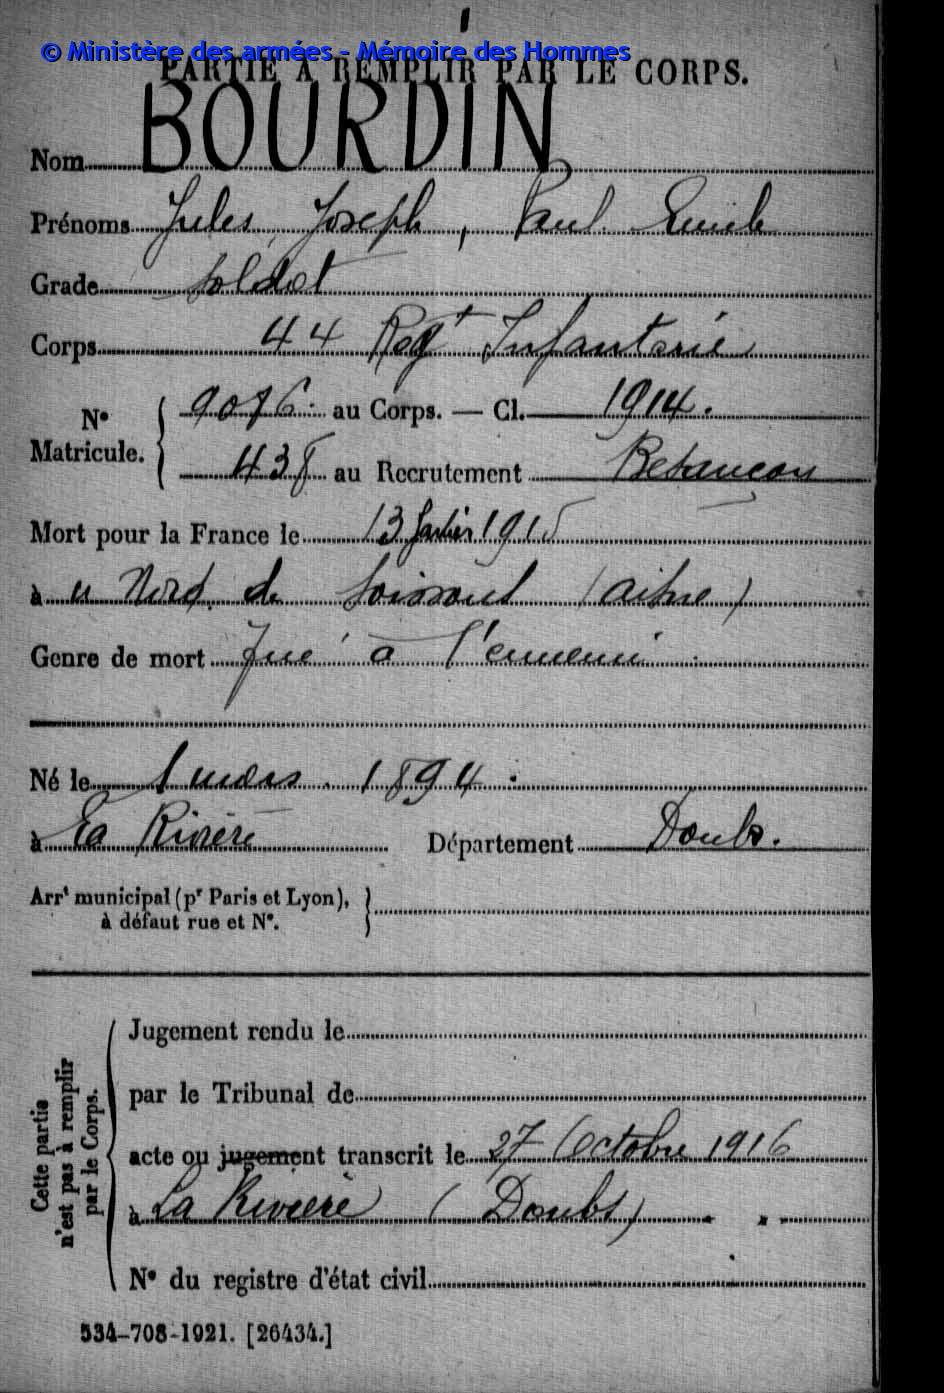 © Ministère des armées - Mémoire des Hommes
PARTIE A REMPLIR PAR LE CORPS.
Nom BOURDIN
Prénoms Jules, Joseph, Paul Emile
Grade soldat
Corps 44 Regt Infanterie
N° Matricule. 9076 au Corps. — Cl. 1914.
438 au Recrutement Besançon
Mort pour la France le 13 Janvier 1915
à u Nord de Soissons (Aisne)
Genre de mort Tué à l'ennemi
Né le 1 mars 1894
à La Rivière Département Doubs.
Arrt municipal (pr Paris et Lyon),
à défaut rue et N°.
Cette partie n'est pas à remplir par le Corps.
Jugement rendu le
par le Tribunal de
acte ou jugement transcrit le 27 Octobre 1916
à La Rivière (Doubs)
N° du registre d'état civil
534-708-1921. [26434.]